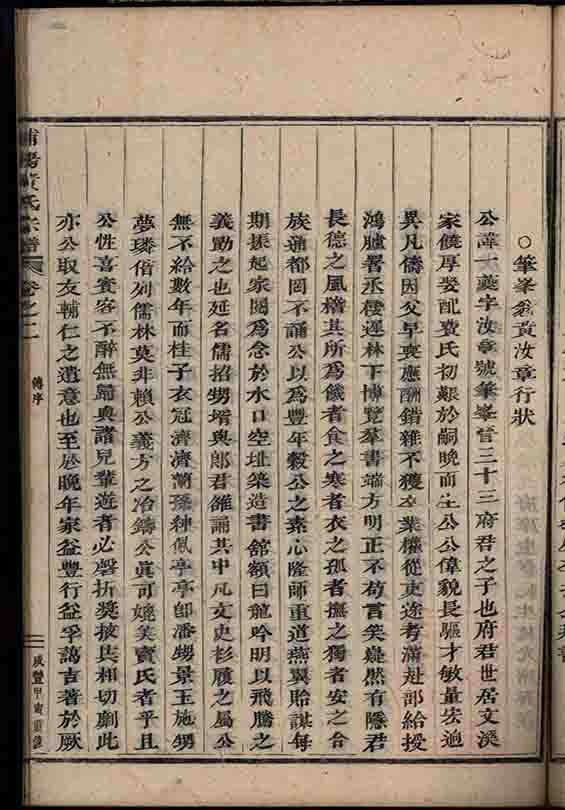 ○筆峯翁黃汝章行狀
公諱一蘷字汝章號筆峯晉三十三府君之子也府君世居文溪
家饒厚娶配賈氏初艱於嗣晚而生公公偉貌長驅才敏量宏迥
異凡儔因父早喪應酬錯雜不獲卒業權從吏途考滿赴部給授
鴻臚署丞棲遲林下博覽羣書端方明正不苟言笑嶷然有隱君
長德之風稽其所爲饑者食之寒者衣之孤者撫之獨者安之合
族通都罔不誦公以爲豐年穀公之素心隆師重道燕翼貽謀每
期振起家聲爲念於水口空址築造書舘額曰龍吟明以飛騰之
義勖之也延名儒招甥壻與郎君雒誦其中凡文史杉履之屬公
無不給數年而桂子衣冠濟濟蘭孫秾佩亭亭卽潘甥景玉施甥
夢璘偕列儒林莫非賴公義方之冶鑄公眞可媲美竇氏者乎且
公性喜賓客不醉無歸與諸兒輩遊者必磬折奬掖共相切劘此
亦公取友輔仁之遺意也至於晚年家益豐行益孚謁吉著於厥
浦陽黃氏宗譜
卷之二
傳序
咸豐甲寅重修